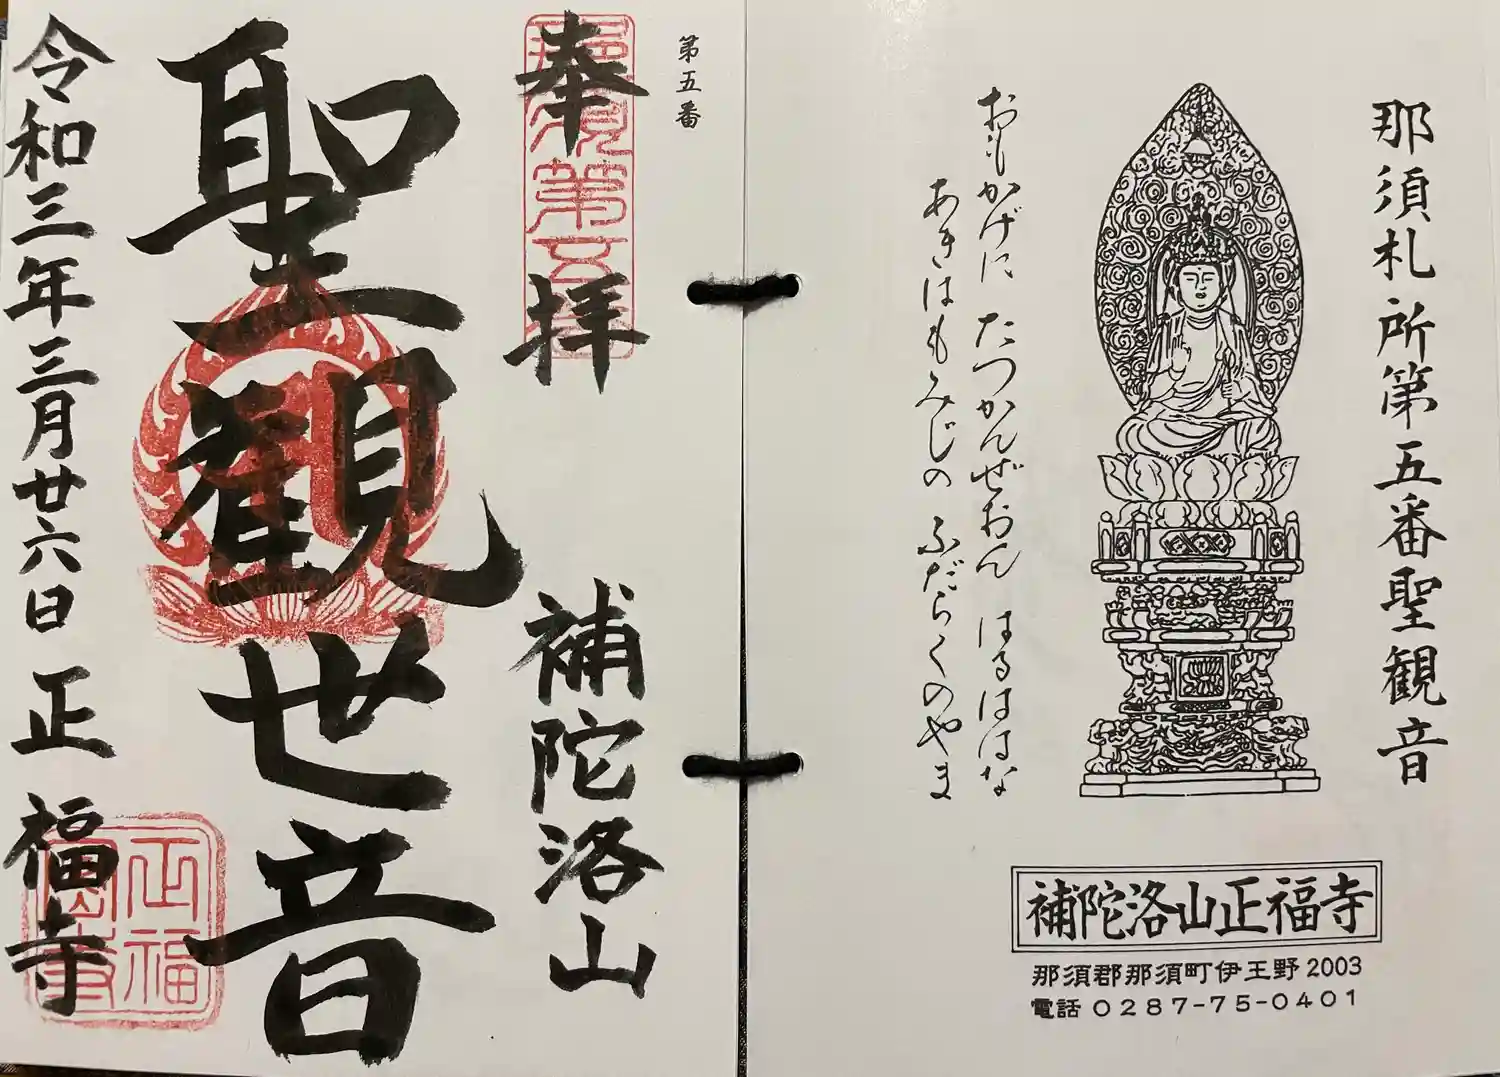 那須札所第五番聖観音
おもかげに たつかんぜおん はるははな
あきはもみじの ふだらくのやま
補陀洛山正福寺
那須郡那須町伊王野2003
電話 0287-75-0401
第五番
奉拝 補陀洛山
那須第五番
聖観世音
令和三年三月廿六日 正福寺
正福